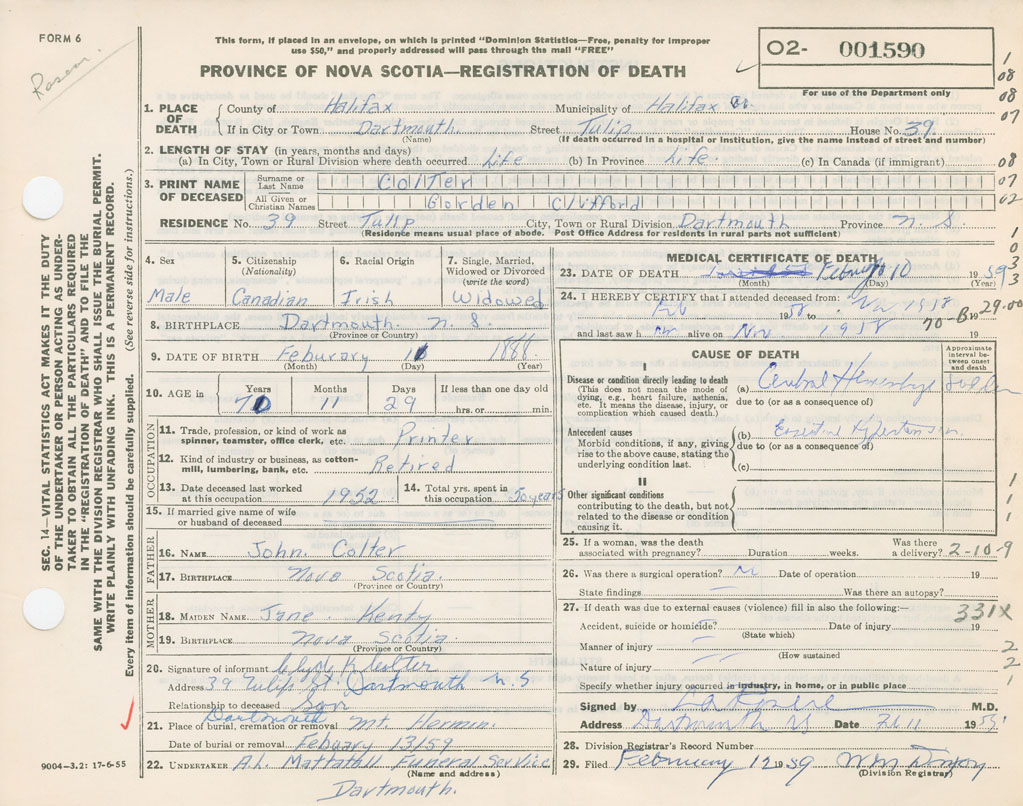 FORM 6
This form, if placed in an envelope, on which is printed "Dominion Statistics—Free, penalty for improper
use $50," and properly addressed will pass through the mail "FREE"
PROVINCE OF NOVA SCOTIA—REGISTRATION OF DEATH
O2- 001590
For use of the Department only
1
08
08
07
08
07
02
1
0
3
3
SEC. 14—VITAL STATISTICS ACT MAKES IT THE DUTY
OF THE UNDERTAKER OR PERSON ACTING AS UNDER-
TAKER TO OBTAIN ALL THE PARTICULARS REQUIRED
IN THE "REGISTRATION OF DEATH" AND TO FILE THE
SAME WITH THE DIVISION REGISTRAR WHO SHALL ISSUE THE BURIAL PERMIT.
WRITE PLAINLY WITH UNFADING INK. THIS IS A PERMANENT RECORD.
Every item of information should be carefully supplied. (See reverse side for instructions.)
1. PLACE OF DEATH { County of Halifax Municipality of Halifax
If in City or Town Dartmouth. Street Tulip House No. 39.
(Name) (If death occurred in a hospital or institution, give the name instead of street and number)
2. LENGTH OF STAY (in years, months and days)
(a) In City, Town or Rural Division where death occurred Life (b) In Province Life. (c) In Canada (if immigrant)
3. PRINT NAME OF DECEASED Surname or Last Name Colter
All Given or Christian Names Gorden Clifford
RESIDENCE No. 39 Street Tulip City, Town or Rural Division Dartmouth Province N. S.
(Residence means usual place of abode. Post Office Address for residents in rural parts not sufficient)
4. Sex 5. Citizenship (Nationality) 6. Racial Origin 7. Single, Married, Widowed or Divorced (write the word)
Male Canadian Irish Widowed
8. BIRTHPLACE Dartmouth. N. S.
(Province or Country)
9. DATE OF BIRTH Feburary 1888.
(Month) (Day) (Year)
10. AGE in Years Months Days If less than one day old
70 11 29 hrs. or min.
OCCUPATION
11. Trade, profession, or kind of work as
spinner, teamster, office clerk, etc. Printer
12. Kind of industry or business, as cotton-
mill, lumbering, bank, etc. Retired
13. Date deceased last worked
at this occupation 1952
14. Total yrs. spent in
this occupation 50 years
15. If married give name of wife
or husband of deceased
FATHER
16. NAME John. Colter
17. BIRTHPLACE Nova Scotia.
(Province or Country)
MOTHER
18. MAIDEN NAME Jane Kenty
19. BIRTHPLACE Nova Scotia.
(Province or Country)
20. Signature of informant Clyde K Colter
Address 39 Tulip St. Dartmouth N. S
Relationship to deceased Son
Dartmouth
21. Place of burial, cremation or removal Mt. Hermin.
Date of burial or removal Febuary 13/59
22. UNDERTAKER A. L. Mattatall Funeral Service
(Name and address)
Dartmouth.
9004—3.2: 17-6-55
MEDICAL CERTIFICATE OF DEATH
23. DATE OF DEATH February 10 1959
(Month) (Day) (Year)
24. I HEREBY CERTIFY that I attended deceased from: 1958 to Nov 1958
70-B 29.00
and last saw h alive on Nov 1958 19
CAUSE OF DEATH
Approximate interval between onset and death
I
Disease or condition directly leading to death
(This does not mean the mode of
dying, e.g., heart failure, asthenia,
etc. It means the disease, injury, or
complication which caused death.)
(a) Cerebral Hemorrhage
due to (or as a consequence of)
Antecedent causes
Morbid conditions, if any, giving
rise to the above cause, stating the
underlying condition last.
(b) Essential Hypertension
due to (or as a consequence of)
(c)
II
Other significant conditions
contributing to the death, but not
related to the disease or condition
causing it.
1
1
1
25. If a woman, was the death
associated with pregnancy? Duration weeks. Was there a delivery? 2-10-9
26. Was there a surgical operation? No Date of operation 19
State findings Was there an autopsy?
27. If death was due to external causes (violence) fill in also the following:— 331X
Accident, suicide or homicide? Date of injury 19
(State which)
Manner of injury 2
(How sustained
Nature of injury 2
Specify whether injury occurred in industry, in home, or in public place 1
Signed by M.D.
Address Dartmouth NS Date Feb 11 1959.
28. Division Registrar's Record Number
29. Filed February 12 1959
(Division Registrar)